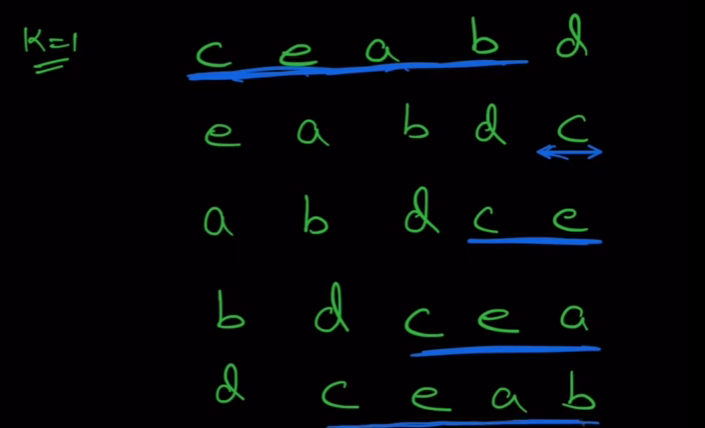 K=1 c e a b d
e a b d c
a b d c e
b d c e a
d c e a b